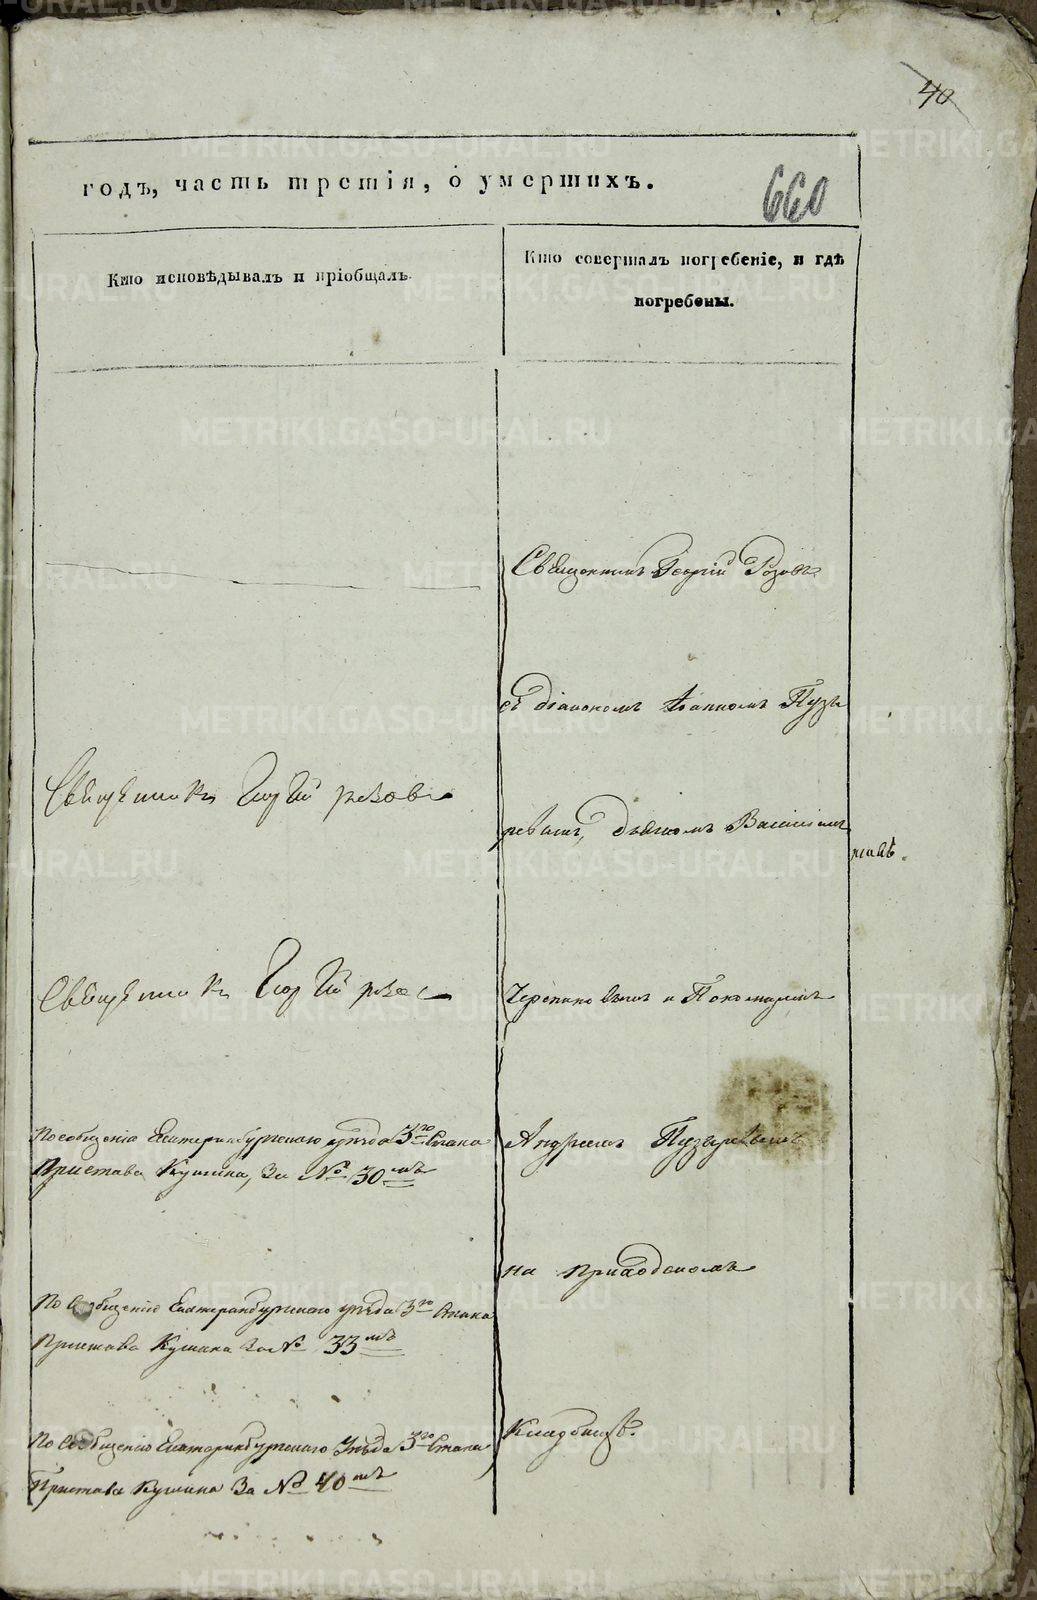 40
годъ, часть третія, о умершихъ.
660
Кто исповѣдывалъ и пріобщалъ.
Кто совершалъ погребеніе, и гдѣ
погребены.
Священникъ Георгій Розовъ
съ діакономъ Іоанномъ Пузы
Священникъ Георгій розовъ
ревымъ, дьякомъ Василіемъ
Священникъ Георгій розов
Черепановымъ и Пономаремъ
По сообщенію Екатеринбургскаго уѣзда 3го Стана
Пристава Кушина, За № 30мъ
Андреемъ Пузыревымъ
на приходскомъ
По сообщенію Екатеринбургскаго уѣзда 3го Стана
Пристава Кушина За № 33мъ
По сообщенію Екатеринбургскаго Уѣзда 3го Стана
Пристава Кушина За № 40мъ
Кладбищѣ.
METRIKI.GASO-URAL.RU